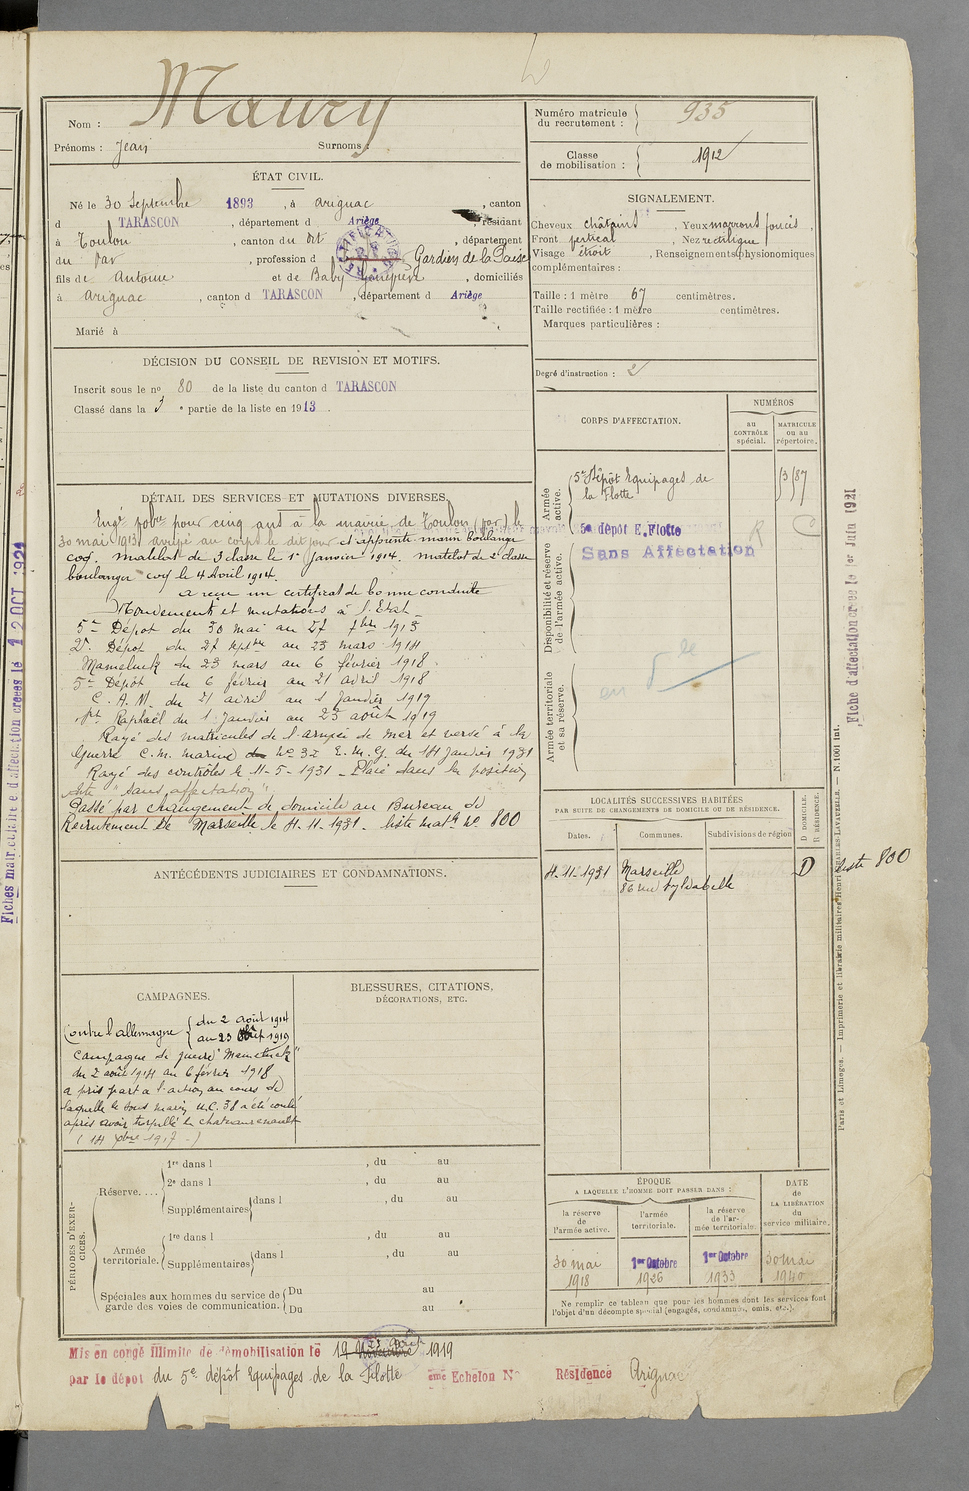 Maury
Nom :
Prénoms : Jean Surnoms :
ÉTAT CIVIL.
Né le 30 Septembre 1893, à Arignac, canton
d TARASCON, département d Ariège, résidant
à Toulon, canton du dit, département
du Var, profession d Gardien de la Paix
fils de Antoine et de Baby Geneviève, domiciliés
à Arignac, canton d TARASCON, département d Ariège
Marié à
DÉCISION DU CONSEIL DE REVISION ET MOTIFS.
Inscrit sous le no 80 de la liste du canton d TARASCON
Classé dans la 3e partie de la liste en 1913.
DÉTAIL DES SERVICES ET MUTATIONS DIVERSES.
Engé volre pour cinq ans à la mairie de Toulon (Var) le
30 mai 1913, arrivé au corps le dit jour et apprenti marin boulanger
coq. matelot de 3 classe le 1er Janvier 1914. matelot de 2 classe
boulanger coq le 4 Avril 1914.
a reçu un certificat de bonne conduite
Mouvements et mutations à l'Etat
5e Dépot du 30 mai au 27 7bre 1913
2e Dépôt du 27 septbre au 23 mars 1914
Mameluck du 23 mars au 6 février 1918
5e Dépôt du 6 février au 21 avril 1918
C. A. M. du 21 avril au 1 Janvier 1919
St Raphaël du 1 Janvier au 23 août 1919
Rayé des matricules de l'armée de mer et versé à la
Guerre C.M. marine No 32 E.M.G. du 14 Janvier 1931
Rayé des contrôles le 11-5-1931 - Placé dans la position
dite "sans affectation"
Passé par changement de domicile au Bureau de
Recrutement de Marseille le 4.11.1931. liste matle No 800
ANTÉCÉDENTS JUDICIAIRES ET CONDAMNATIONS.
CAMPAGNES.
Contre l'allemagne { du 2 août 1914
au 23 août 1919
Campagne de guerre "Mameluck"
du 2 août 1914 au 6 février 1918
a pris part à l'action au cours de
laquelle le sous marin U.C. 38 a été coulé
après avoir torpillé le chateaurenault
(14 xbre 1917 -)
BLESSURES, CITATIONS,
DÉCORATIONS, ETC.
PÉRIODES D'EXERCICES.
Réserve....
1re dans l , du au
2e dans l , du au
Supplémentaires dans l , du au
Armée territoriale.
1re dans l , du au
Supplémentaires dans l , du au
Spéciales aux hommes du service de
garde des voies de communication.
Du au
Du au
Numéro matricule
du recrutement : 935
Classe
de mobilisation : 1912
SIGNALEMENT.
Cheveux châtains, Yeux marrons foncés,
Front vertical, Nez rectiligne,
Visage étroit, Renseignements physionomiques
complémentaires :
Taille : 1 mètre 67 centimètres.
Taille rectifiée : 1 mètre centimètres.
Marques particulières :
Degré d'instruction : 2
CORPS D'AFFECTATION.
NUMÉROS
au
CONTRÔLE
spécial.
MATRICULE
ou au
répertoire.
Armée
active.
5e Dépôt Equipages de
la Flotte
Disponibilité et réserve
de l'armée active.
5e dépôt E. Flotte
Sans Affectation
R C
Armée territoriale
et sa réserve.
LOCALITÉS SUCCESSIVES HABITÉES
PAR SUITE DE CHANGEMENTS DE DOMICILE OU DE RÉSIDENCE.
Dates. Communes. Subdivisions de région
D DOMICILE.
R RÉSIDENCE.
4-11-1931 Marseille D liste 800
86 rue Sylvabelle
ÉPOQUE
A LAQUELLE L'HOMME DOIT PASSER DANS :
la réserve
de
l'armée active.
l'armée
territoriale.
la réserve
de l'ar-
mée territoriale.
DATE
de
LA LIBÉRATION
du
service militaire.
30 mai
1918
1er Octobre
1926
1er Octobre
1933
30 mai
1940
Ne remplir ce tableau que pour les hommes dont les services font
l'objet d'un décompte spécial (engagés, condamnés, omis, etc.).
Mis en congé illimité de démobilisation le 23 août 1919
par le dépot du 5e dépôt Equipages de la Flotte eme Echelon No Résidence Arignac
Fiche d'affectation créée le 1er Juin 1921
Paris et Limoges. — Imprimerie et librairie militaires Henri CHARLES-LAVAUZELLE. — N. 1001 Int.
Fiches matricule et d'affectation créées le 12 OCT 1921